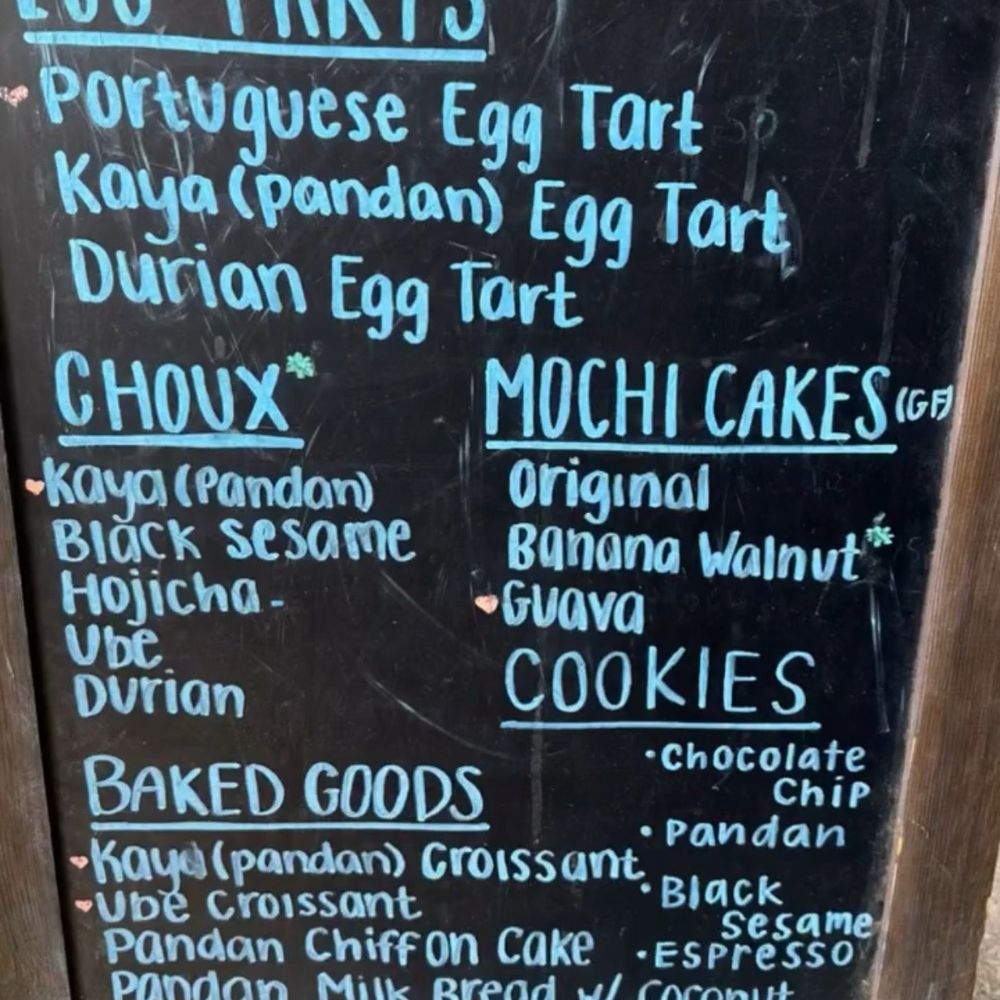 EGG TARTS
Portuguese Egg Tart
Kaya (pandan) Egg Tart
Durian Egg Tart
CHOUX
Kaya (Pandan)
Black Sesame
Hojicha -
Ube
Durian
MOCHI CAKES (GF)
Original
Banana Walnut
Guava
COOKIES
• Chocolate
Chip
• Pandan
• Black
Sesame
• Espresso
BAKED GOODS
Kaya (pandan) Croissant
Ube Croissant
Pandan Chiffon Cake
Pandan Milk Bread w/ Coconut